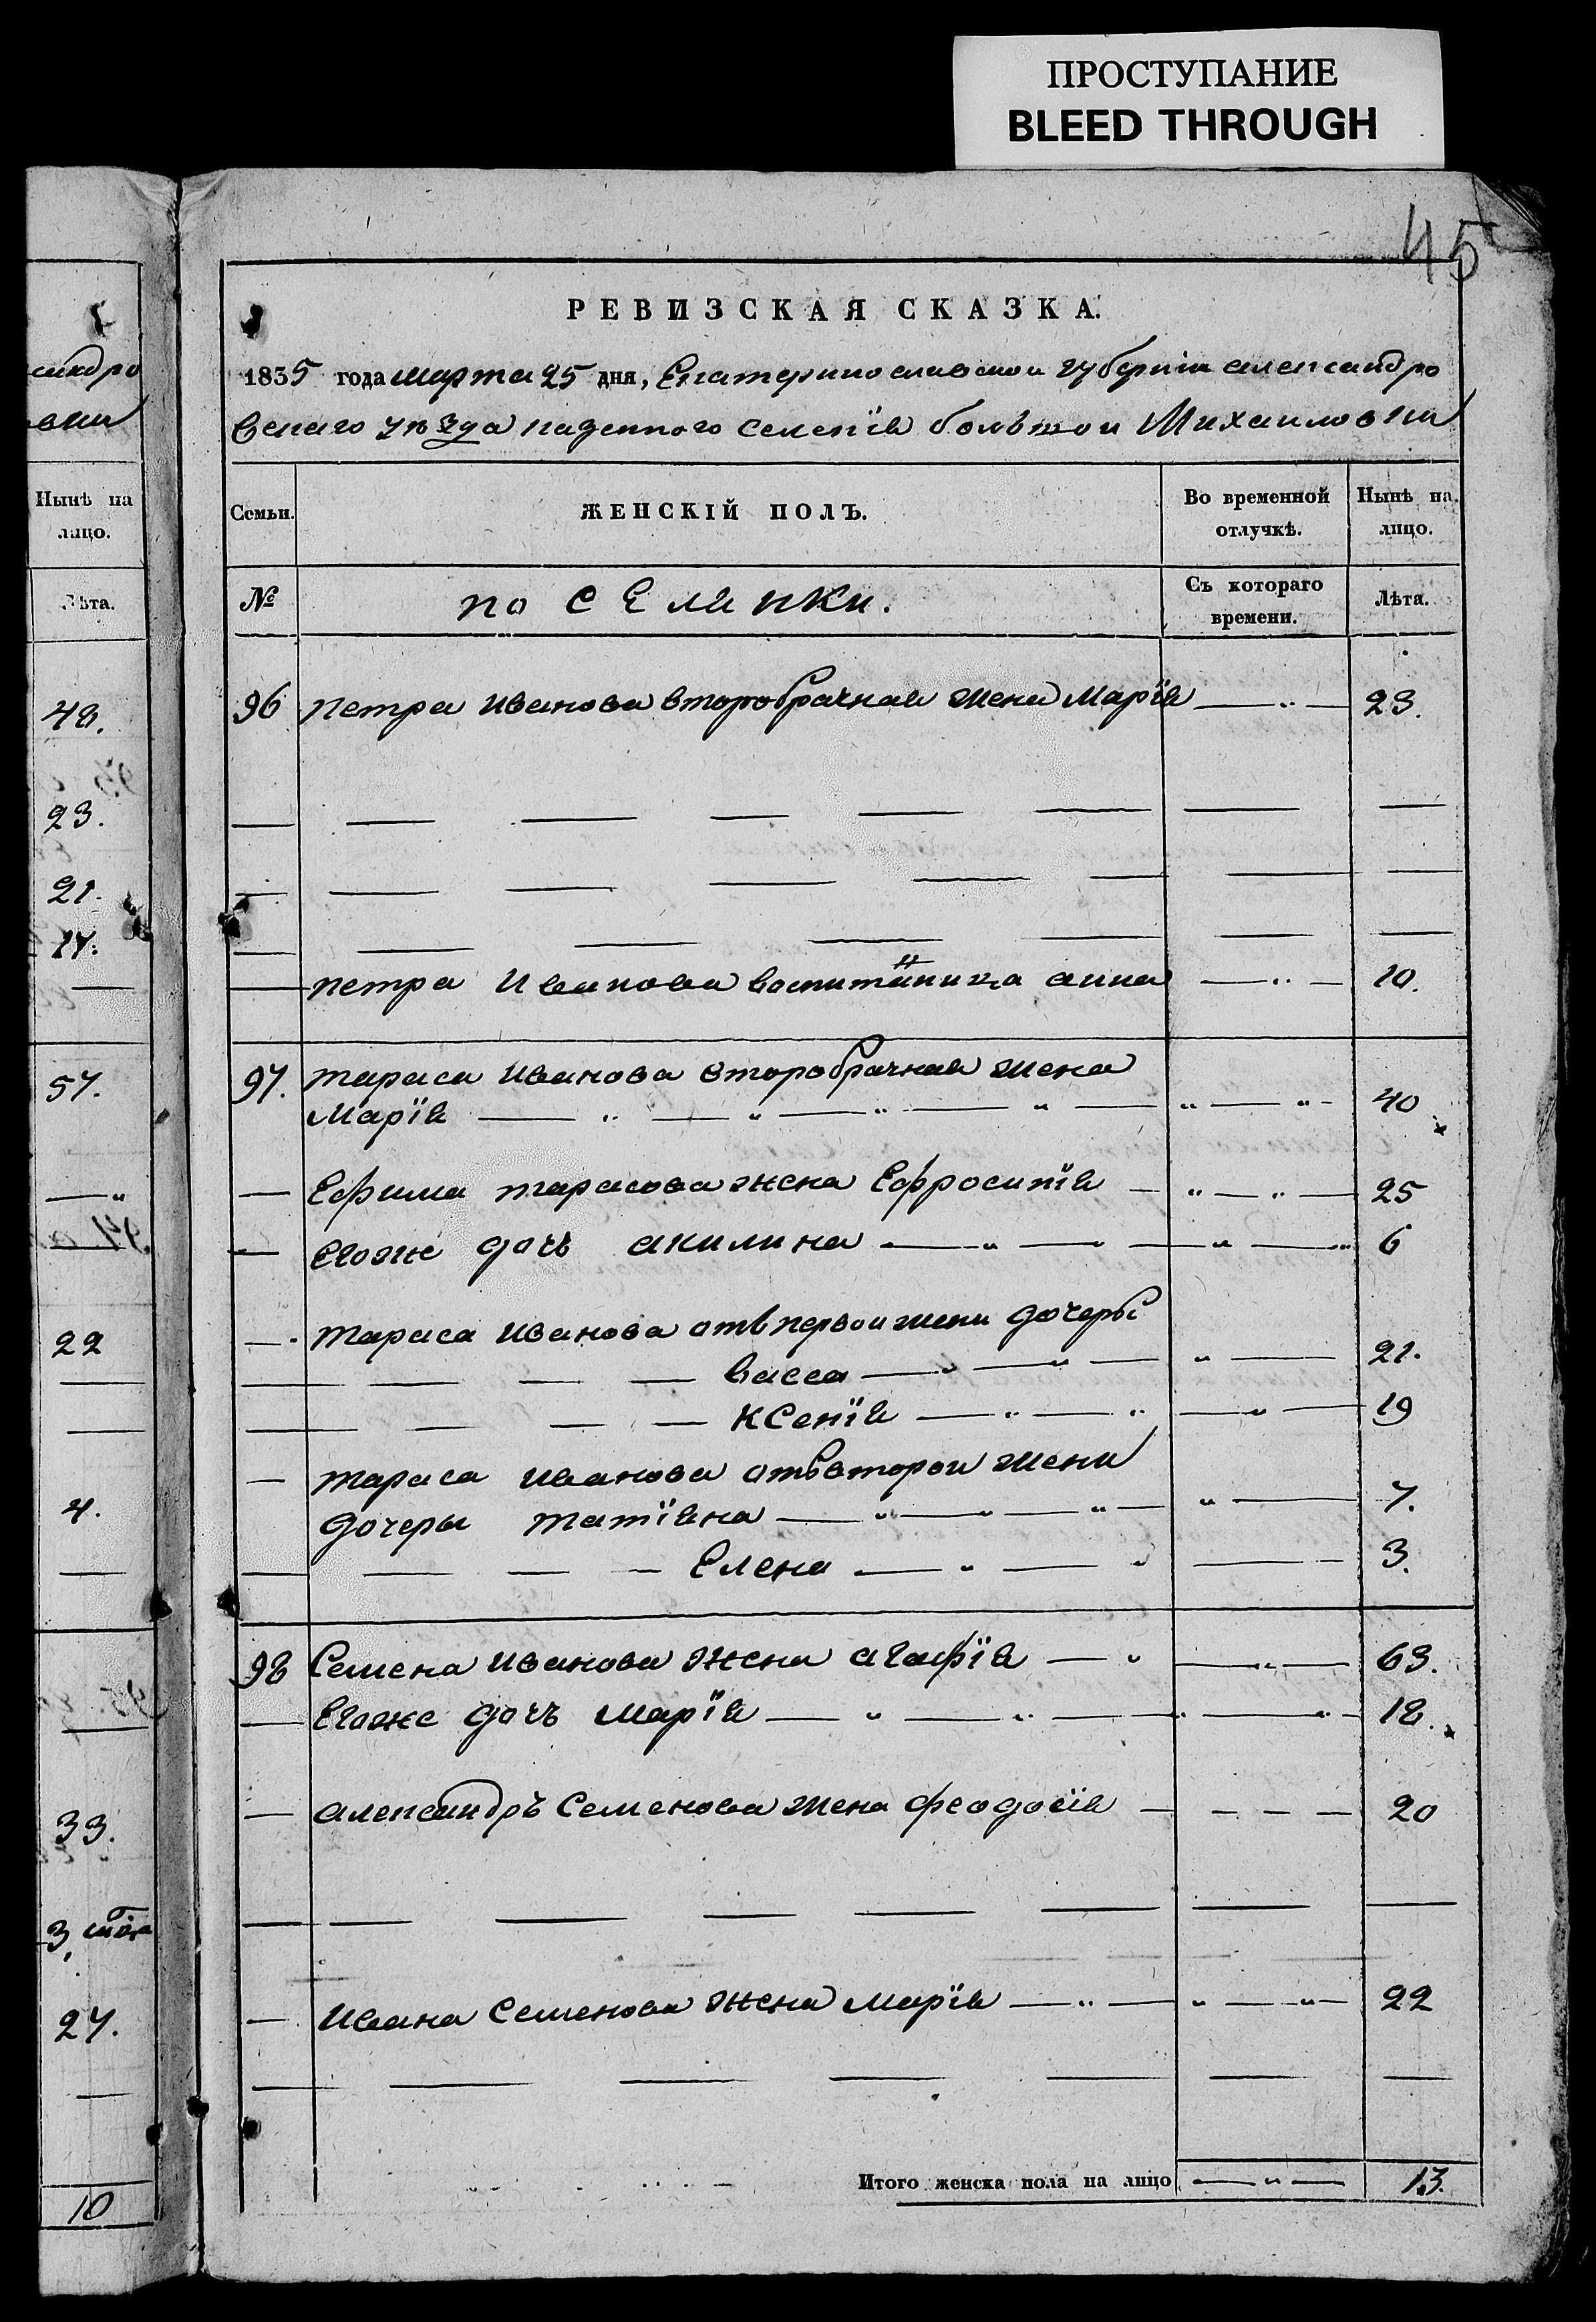 ПРОСТУПАНИЕ
BLEED THROUGH
45
РЕВИЗСКАЯ СКАЗКА.
1835 года марта 25 дня, Екатеринославской губерніи александро
вскаго уѣзда казенного селенія большой Михайловки
Семьи.
ЖЕНСКІЙ ПОЛЪ.
Во временной отлучкѣ.
Нынѣ на лицо.
№
поселянки.
Съ котораго времени.
Лѣта.
96 петра иванова второбрачная жена Марїя 23.
петра иванова воспитанница анна 10.
97. тараса иванова второбрачная жена
Марїя 40
Ефима тарасова жена Ефросинїя 25
Егоже дочъ акилина 6
тараса иванова отъ первои жени дочеры
васса 21.
Ксенїя 19
тараса иванова отъ второи жени
дочеры татїяна 7.
Елена 3.
98 Семена иванова жена агафїя 63.
Егоже дочъ марїя 18.
александръ Семенова жена феодосїя 20
ивана Семенова жена марїя 22
Итого женска пола на лицо 13.
сандро
вки
Нынѣ на
лицо.
Лѣта.
48.
23.
21.
17.
57.
22
4.
33.
27.
10